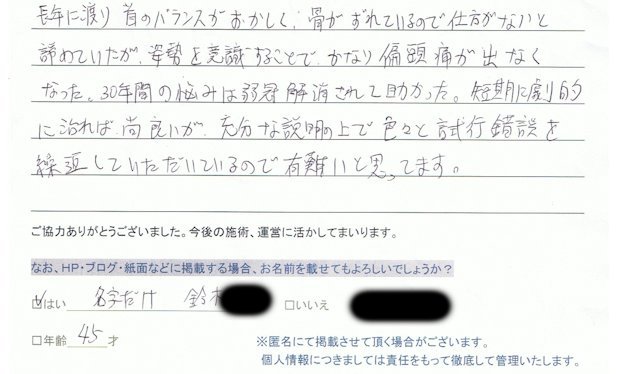 長年に渡り 首のバランスがおかしく、骨がずれているので仕方がないと
諦めていたが、姿勢を意識することで、かなり偏頭痛が出なく
なった。30年間の悩みは弱冠解消されて助かった。短期に劇的
に治れば尚良いが、充分な説明の上で色々と試行錯誤を
繰返していただいているので有難いと思ってます。
ご協力ありがとうございました。今後の施術、運営に活かしてまいります。
なお、HP・ブログ・紙面などに掲載する場合、お名前を載せてもよろしいでしょうか？
☑はい 名字だけ 鈴木 □いいえ
□年齢 45 才 ※匿名にて掲載させて頂く場合がございます。
個人情報につきましては責任をもって徹底して管理いたします。